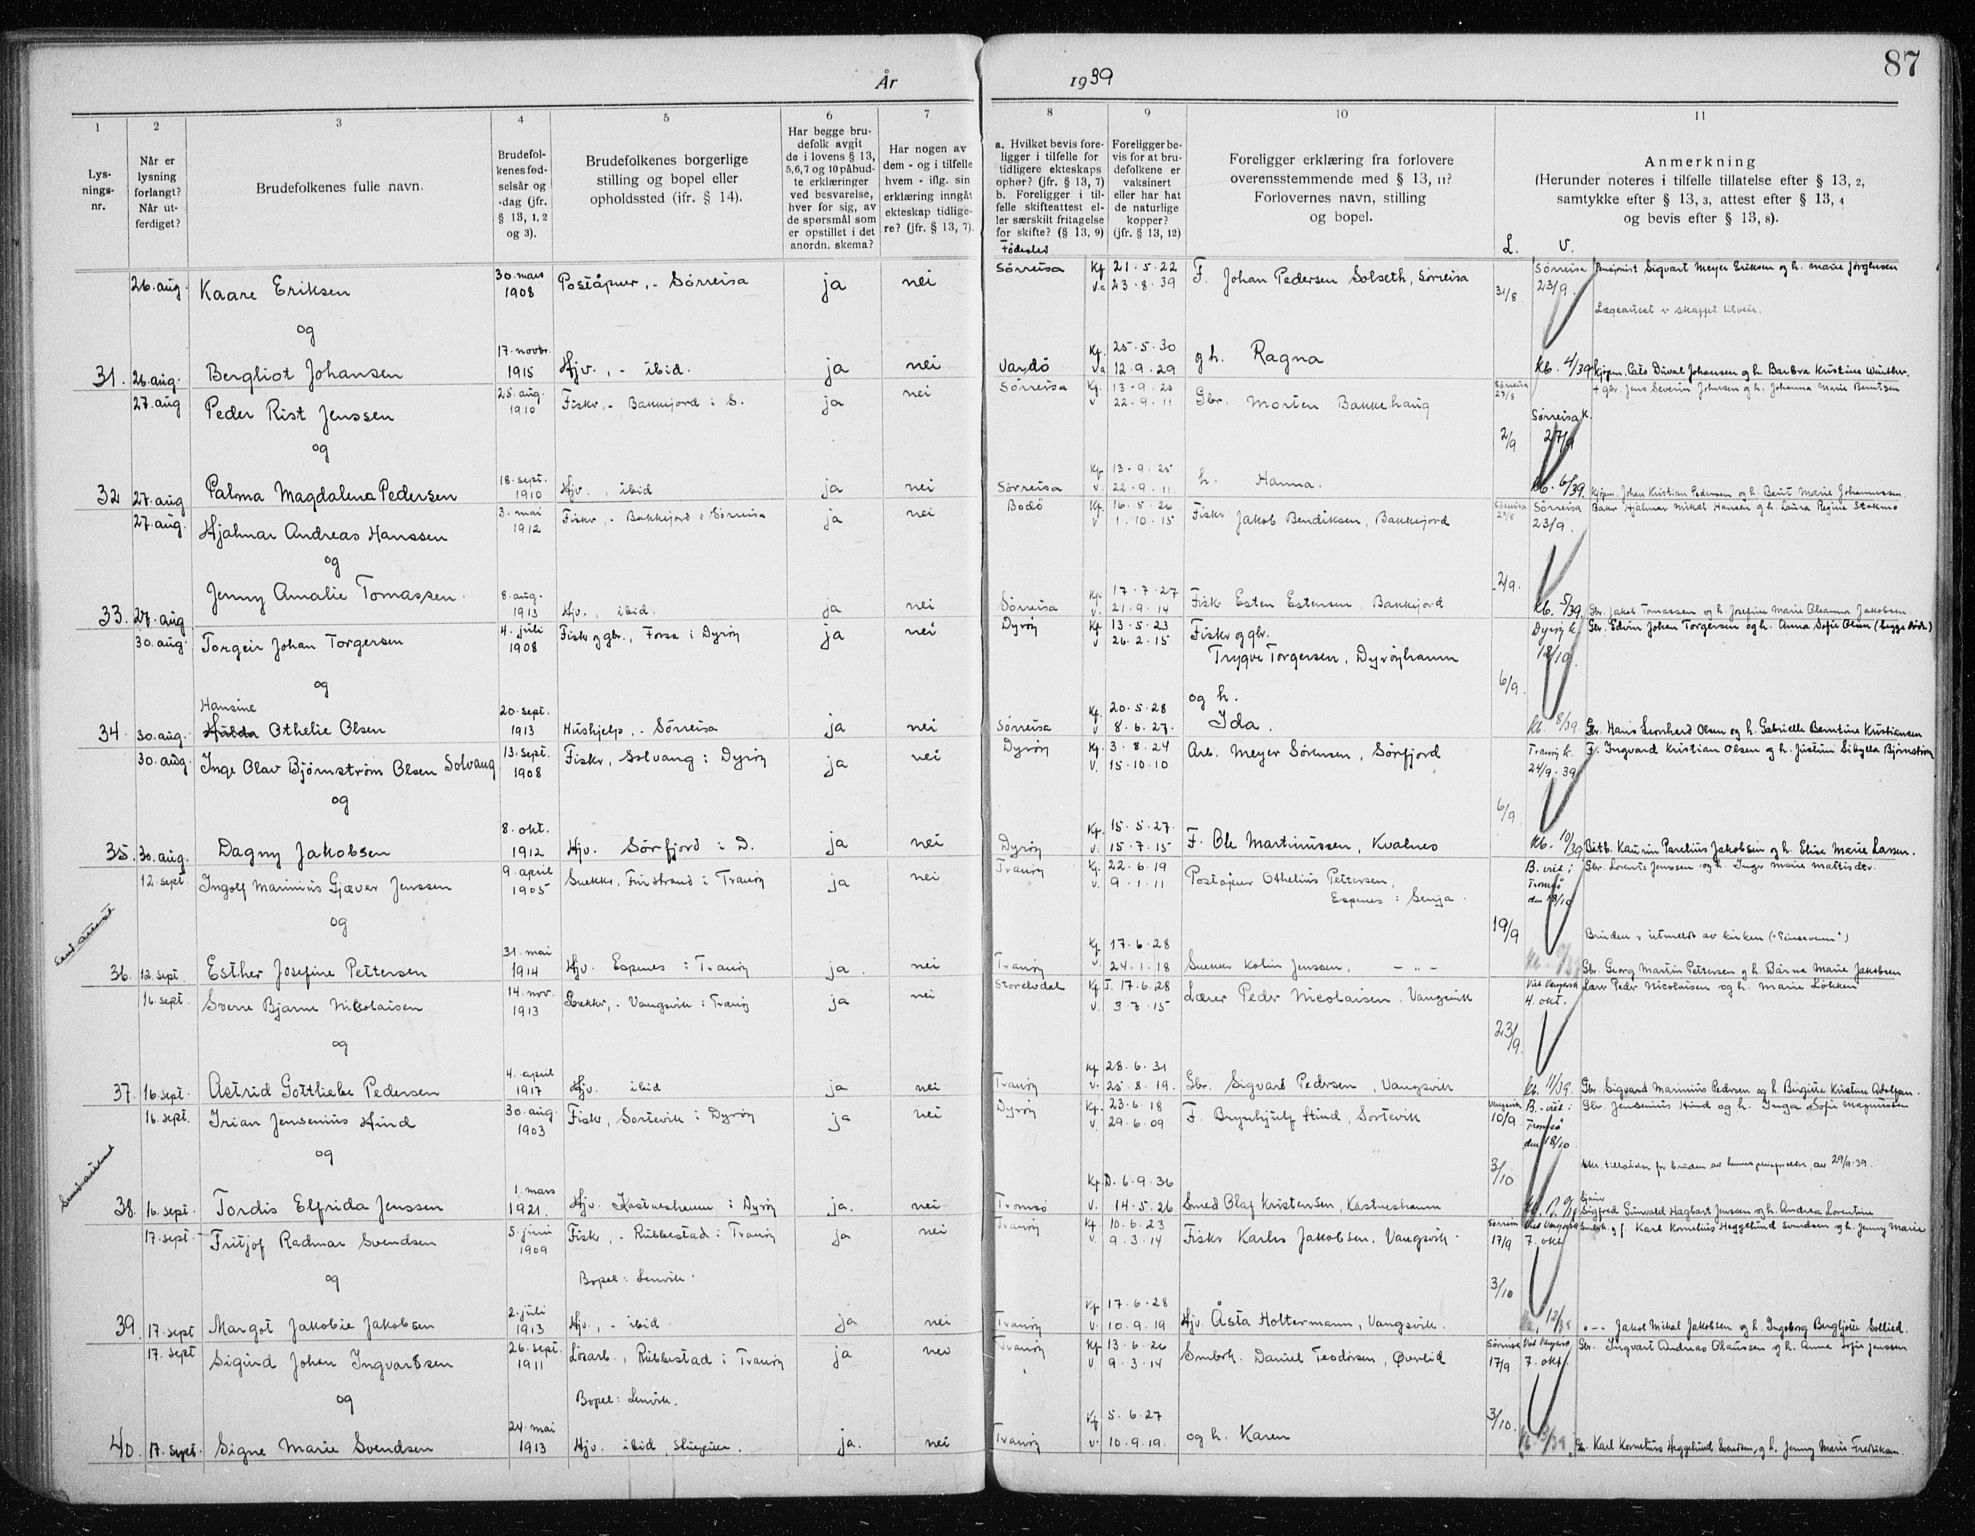 87
År 1939
1 2 3 4 5 6 7 8 9 10 11
Lys-
nings-
nr.
Når er
lysning
forlangt?
Når ut-
ferdiget?
Brudefolkenes fulle navn.
Brudefol-
kenes fød-
selsår og
-dag (jfr.
§ 13, 1, 2
og 3).
Brudefolkenes borgerlige
stilling og bopel eller
opholdssted (jfr. § 14).
Har begge bru-
defolk avgit
de i lovens § 13,
5,6,7 og 10 påbud-
te erklæringer
ved besvarelse,
hver for sig, av
de spørsmål som
er opstillet i det
anordn. skema?
Har nogen av
dem - og i tilfelle
hvem - iflg. sin
erklæring inngåt
ekteskap tidlige-
re? (jfr. § 13, 7).
a. Hvilket bevis fore-
ligger i tilfelle for
tidligere ekteskaps
ophør? (jfr. § 13, 7)
b. Foreligger i til-
felle skifteattest el-
ler særskilt fritagelse
for skifte? (§ 13, 9)
Fødested
Foreligger be-
vis for at bru-
defolkene er
vaksinert
eller har hat
de naturlige
kopper?
(jfr. § 13, 12)
Foreligger erklæring fra forlovere
overensstemmende med § 13, 11?
Forlovernes navn, stilling
og bopel.
Anmerkning
(Herunder noteres i tilfelle tillatelse efter § 13, 2,
samtykke efter § 13, 3, attest efter § 13, 4
og bevis efter § 13, 8).
L. V.
26. aug. Kaare Eriksen 30. mars 1908 Poståpner, - Sørreisa ja nei Sørreisa Kf. 21.5.22 Va 23.8.39 F. Johan Pedersen Solseth, Sørreisa 31/8 Sørreisa 23/9. Pensjonist Sigvart Meyer Eriksen og h. Marie Jørgensen
og
31. 26. aug. Bergliot Johansen 17. novbr. 1915 Hjv., - ibid. ja nei Vardö Kf. 25.5.30 Va 12.9.29 og h. Ragna kb. 4/39 Kjøpm. Cato Düval Johansen og h. Barbra Kristine Winther.
27. aug Peder Rist Jenssen 25. aug. 1910 Fiskr, - Bakkejord i S. ja nei Sørreisa Kf. 13.9.25 V 22.9.11 Gbr. Morten Bakkehaug Sørreisa 27/8 2/9 Sørreisa k. 27/9 + gbr. Jens Severin Johnsen og h. Johanna Marie Berntsen
og
32 27. aug Palma Magdalena Pedersen 18. sept. 1910 Hjv., ibid ja nei Sørreisa Kf. 13.9.25 V. 22.9.11. h. Hanna. kb. 6/39. Kjøpm. Johan Kristian Pedersen og h. Berit Marie Johannessen.
27. aug. Hjalmar Andreas Hanssen 3. mai 1912 Fiskr, - Bakkejord i Sørreisa ja nei Bodö Kf. 16.5.26 V 1.10.15 Fiskr Jakob Bendiksen, Bakkejord Sørreisa 27/8 2/9. Sørreisa 23/9. Bakr Hjalmar Mikal Hansen og h. Laura Regine Stakmo
og
33. 27. aug Jenny Amalie Tomassen. 8. aug. 1913 Hjv., ibid. ja nei Sørreisa Kf. 17.7.27 V. 21.9.14 Fiskr Esten Estensen, Bakkejord kb. 5/39 Gbr. Jakob Tomassen og h. Josefine Marie Oleanna Jakobsen.
30. aug. Torgeir Johan Torgersen 4. juli 1908 Fiskr og gbr., Forsa i Dyröy ja nei Dyröy Kf. 13.5.23 V 26.2.15 Fiskr og gbr. Trygve Torgersen, Dyröyhamn 6/9. Dyröy k. 18/10. Gbr. Edvin Johan Torgersen og h. Anna Sofie Olsen (begge døde)
og
34 30. aug. Hansine Hulda Othelie Olsen 20. sept. 1913 Hushjelp, - Sørreisa ja nei Sørreisa Kf. 20.5.28 V 8.6.27. og h. Ida. kb. 8/39 Gbr. Hans Leonhard Olsen og h. Gabrielle Berntine Kristiansen
30. aug Inge Olav Bjørnstrøm Olsen Solvang 13. sept. 1908 Fiskr, Solvang i Dyröy ja nei Dyröy Kf. 3.8.24 V. 15.10.10 Arb. Meyer Sörensen, Sørfjord 6/9. Tranöy k. 24/9.39 F. Ingvard Kristian Olsen og h. Justine Sibylla Bjørnstrøm
og
35. 30. aug. Dagny Jakobsen 8. okt. 1912 Hjv. Sørfjord i D. ja nei Dyröy Kf. 15.5.27. V. 15.7.15 F. Ole Martinussen, Kvalnes kb. 10/39 Båtb. Kaurin Parelius Jakobsen og h. Elise Marie Larsen.
12. sept. Ingolf Marinius Gjæver Jenssen 9. april 1905 Snekkr, Finstrand i Tranöy ja nei Tranöy Kf. 22.6.19 V. 9.1.11 Poståpner Othelius Pettersen, Espenes i Senja. 19/9 B. viet i Tromsö den 18/10 Gbr. Lorents Jenssen og h. Inger Marie Mattisdtr.
og
Bruden er utmeldt av kirken ("Pinsevenn")
Send attest
36. 12. sept. Esther Josefine Pettersen 31. mai 1914 Hjv. Espenes i Tranöy ja. nei Tranöy Kf. 17.6.28 V. 24.1.18 Snekkr Kolin Jenssen, - " - Gbr. Georg Martin Pettersen og h. Barna Marie Jakobsen
16. sept. Sverre Bjarne Nikolaisen 14. nov. 1913 Bekkr, - Vangsvik i Tranöy ja nei Storelvdal Kf. 17.6.28 V. 3.7.15 Lærer Peder Nicolaisen, Vangsvik 23/9. Viet Vangsvik 4. okt. Lærer Peder Nicolaisen og h. Marie Lökken
og
37. 16. sept. Astrid Gottliebe Pedersen 4. april 1917 Hjv. ibid ja nei Tranöy Kf. 28.6.31 V. 25.8.19. Gbr. Sigvart Pedersen, Vangsvik kb. 11/39. Gbr Sigvard Marinius Pedersen og h. Birgitte Kristine Adolfsen.
16. sept. Irian Jensenius Hind 30. aug. 1903 Fiskr, Sortevik i Dyröy ja nei Dyröy Kf. 23.6.18 V. 29.6.09 F. Brynhjulf Hind, Sortevik Vangsvik 10/9. 3/10 B. viet i Tromsö den 18/10 Gbr. Jensenius Hind og h. Inga Sofie Magnussen
og
Send attest
38. 16. sept. Tordis Elfrida Jenssen 1. mars 1921. Hjv. Kastneshamn i Dyröy ja. nei. Tromsö Kf. D. 6.9.36 V. 14.5.26 Smed Olaf Kristensen, Kastneshamn Sigfred Günvald Hagbart Jenssen og h. Andrea Lorentine
17. sept. Fritjof Radmar Svendsen 5. juni 1909 Fiskr, - Rubbestad i Tranöy ja nei Tranöy Kf. 10.6.23 V. 9.3.14 Fiskr Karles Jakobsen. Vangsvik. Sørreisa 17/9 3/10 Viet Vangsvik 7. okt. Småbrk. og f. Karl Kornelius Heggelund Svendsen og h. Jenny Marie
og
Bopel: Lenvik.
39. 17. sept Margot Jakobie Jakobsen 2. juli 1913 Hjv., - ibid. ja nei Tranöy Kf. 17.6.28 V. 10.9.19 Hjv. Åsta Holtermann, Vangsvik. - " - Jakob Mikal Jakobsen og h. Ingeborg Bergljotte Sollied.
17. sept Sigurd Johan Ingvartsen 26. sept. 1911 Lösarb., Rubbestad i Tranöy ja nei Tranöy Kf 13.6.26 V. 9.3.14 Småbrk. Daniel Teodorsen, Øverlid Sørreisa 17/9 3/10. Viet Vangsvik 7. okt. Gbr. Ingvart Andreas Olaussen og h. Anna Sofie Jenssen
og
Bopel: Lenvik.
40. 17. sept. Signe Marie Svendsen 24. mai 1913 Hjv. ibid, ja. nei Tranöy Kf 5.6.27 V. 10.9.19. og h. Karen Gbr. Karl Kornelius Heggelund Svendsen, og h. Jenny Marie Fredriksen.